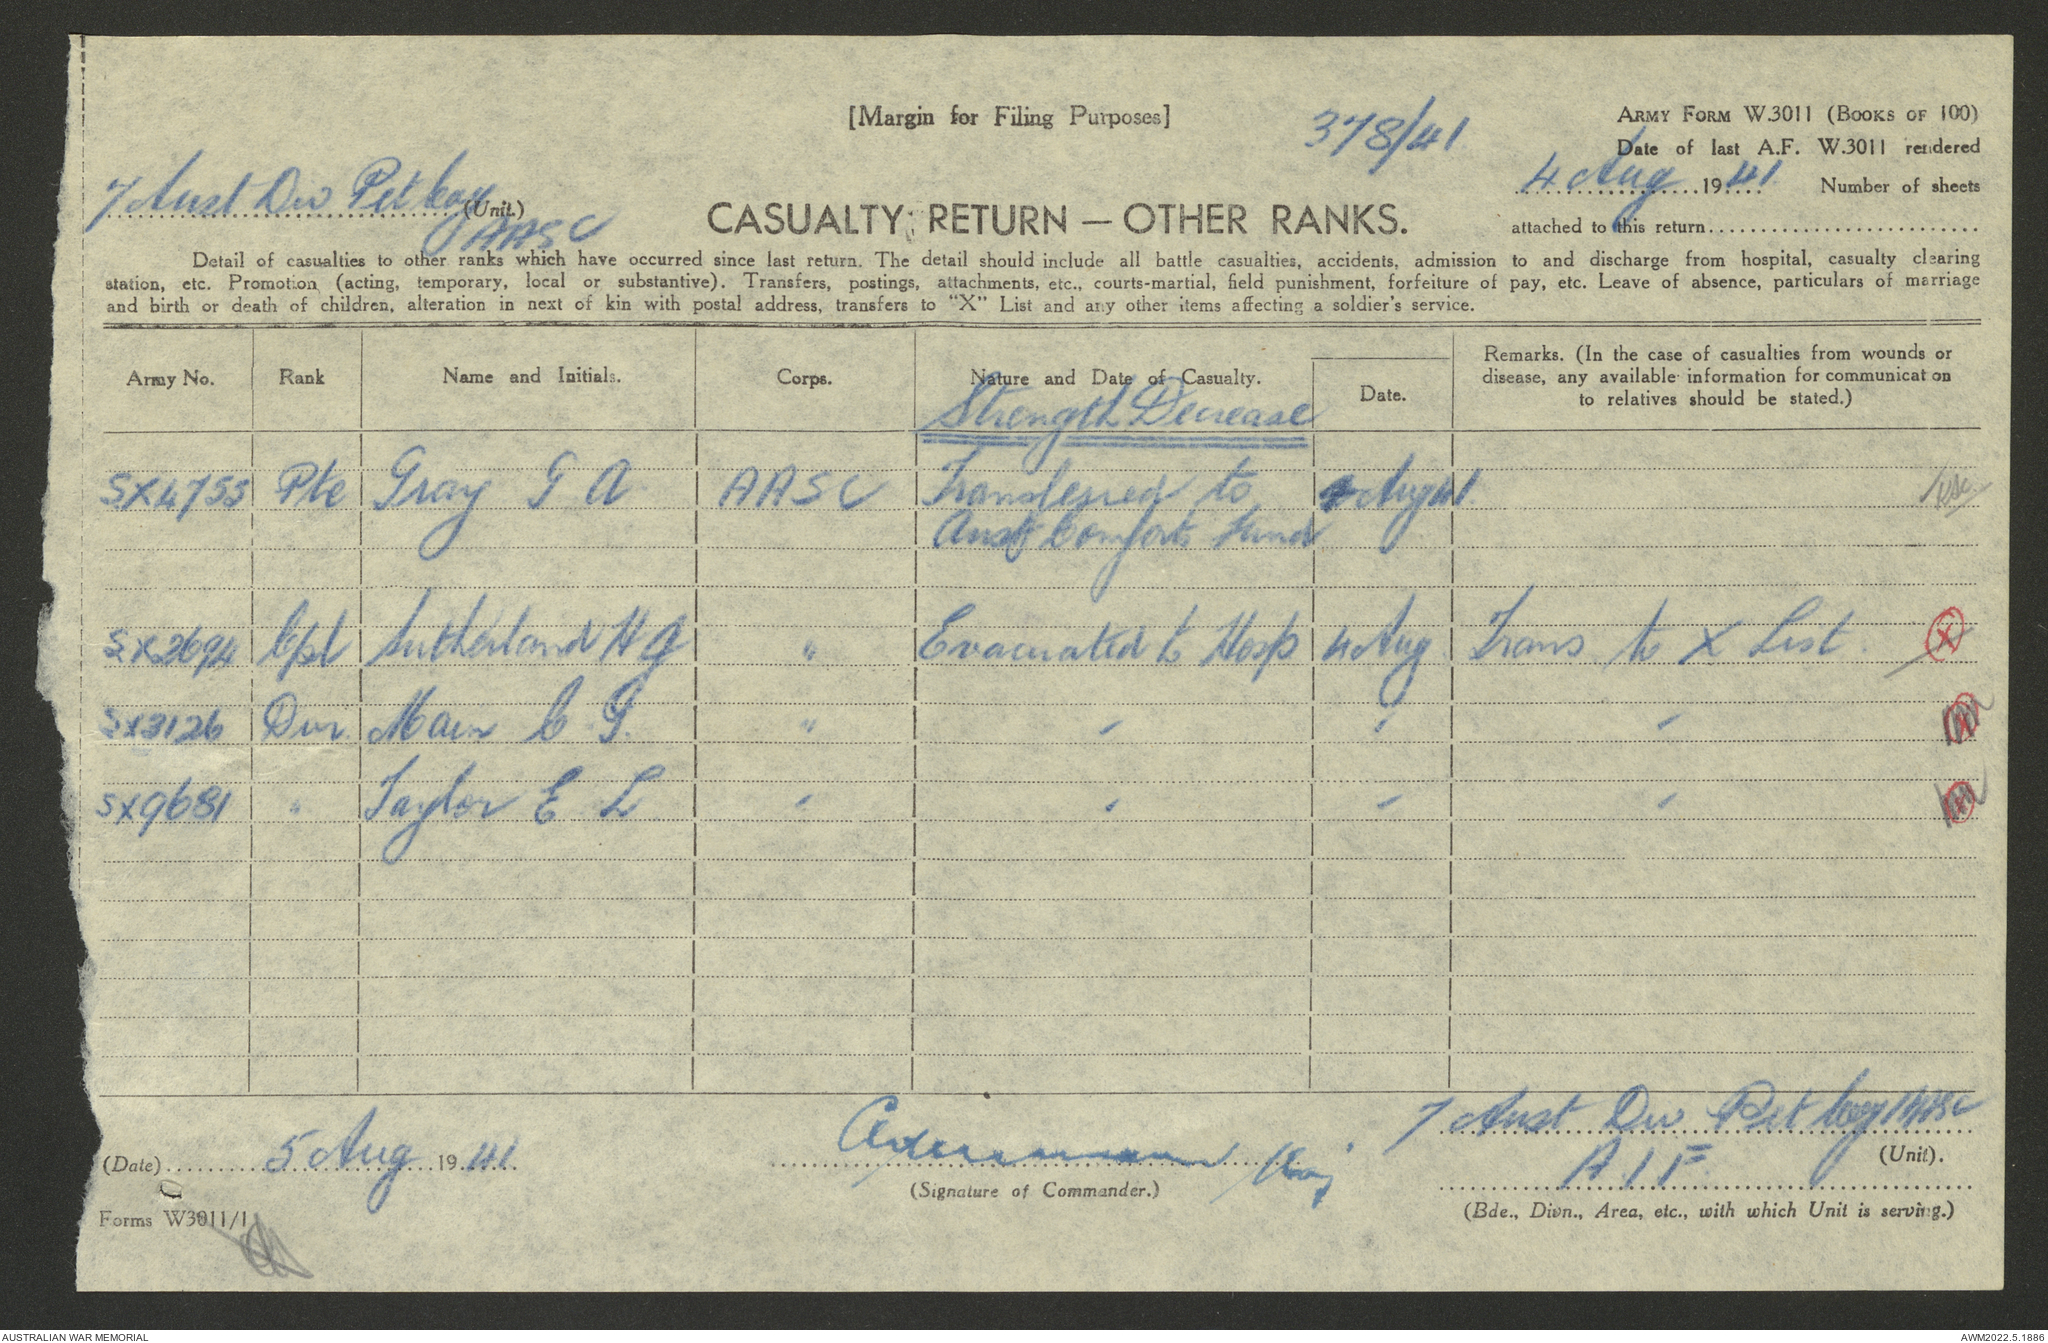 [Margin for Filing Purposes]
378/41
ARMY FORM W.3011 (BOOKS OF 100)
Date of last A.F. W.3011 rendered
4 Aug 1941 Number of sheets
attached to this return
7 Aust Div Pet Coy (Unit)
AASC
CASUALTY RETURN — OTHER RANKS.
Detail of casualties to other ranks which have occurred since last return. The detail should include all battle casualties, accidents, admission to and discharge from hospital, casualty clearing
station, etc. Promotion (acting, temporary, local or substantive). Transfers, postings, attachments, etc., courts-martial, field punishment, forfeiture of pay, etc. Leave of absence, particulars of marriage
and birth or death of children, alteration in next of kin with postal address, transfers to "X" List and any other items affecting a soldier's service.
Army No. Rank Name and Initials. Corps. Nature and Date of Casualty. Date. Remarks. (In the case of casualties from wounds or
disease, any available information for communicat on
to relatives should be stated.)
Strength Decrease
SX4755 Pte Gray G A AASC Transferred to Aug 41
Aust Comforts Fund
SX2694 Cpl Sutherland H G " Evacuated to Hosp 4 Aug Trans to X List. X
SX3126 Dvr Main C G. " " " "
SX9681 " Taylor E L " " " "
(Date) 5 Aug 1941
Maj
(Signature of Commander.)
7 Aust Div Pet Coy AASC
(Unit).
A I F
(Bde., Divn., Area, etc., with which Unit is serving.)
Forms W3011/1
AUSTRALIAN WAR MEMORIAL
AWM2022.5.1886